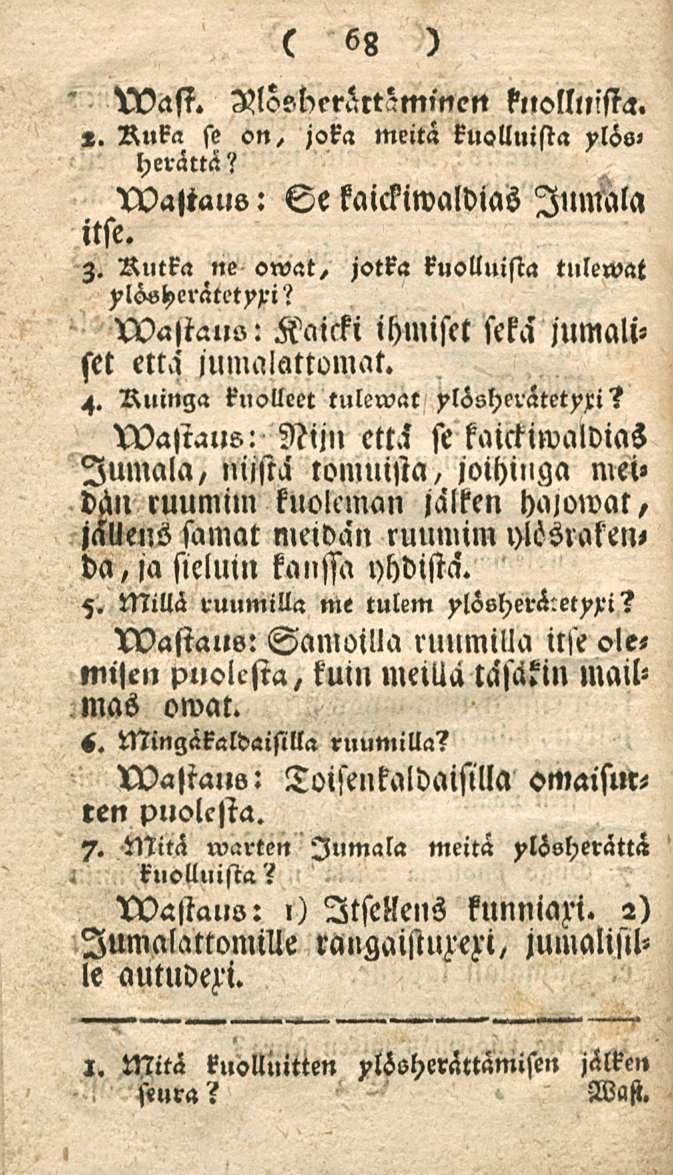 ( 68 )
Wast. Ylösherättäminen kuolluista.
2. Kuka se on, joka meitä kuolluista ylös-
herättä?
Wastaus: Se kaickiwaldias Jumala
itse.
3. Kutka ne owat, jotka kuolluista tulewat
ylösherätetyxi?
Wastaus: Kaicki ihmiset sekä jumali-
set että jumalattomat.
4. Kuinga kuolleet tulewat ylösherätetyxi?
Wastaus: Nijn että se kaickiwaldias
Jumala, nijstä tomuista, joihinga mei-
dän ruumim kuoleman jälken hajowat,
jällens samat meidän ruumim ylösraken-
da, ja sieluin kanssa yhdistä.
5. Millä ruumilla me tulem ylösherätetyxi?
Wastaus: Samoilla ruumilla itse ole-
misen puolesta, kuin meillä täsäkin mail-
mas owat.
6. Mingäkaldaisilla ruumilla?
Wastaus: Toisenkaldaisilla omaisut-
ten puolesta.
7. Mitä warten Jumala meitä ylösherättä
kuolluista?
Wastaus: 1) Itsellens kunniaxi. 2)
Jumalattomille rangaistuxexi, jumalisil-
le autudexi.
1. Mitä kuolluitten ylösherättämisen jälken
seura?
Wast.